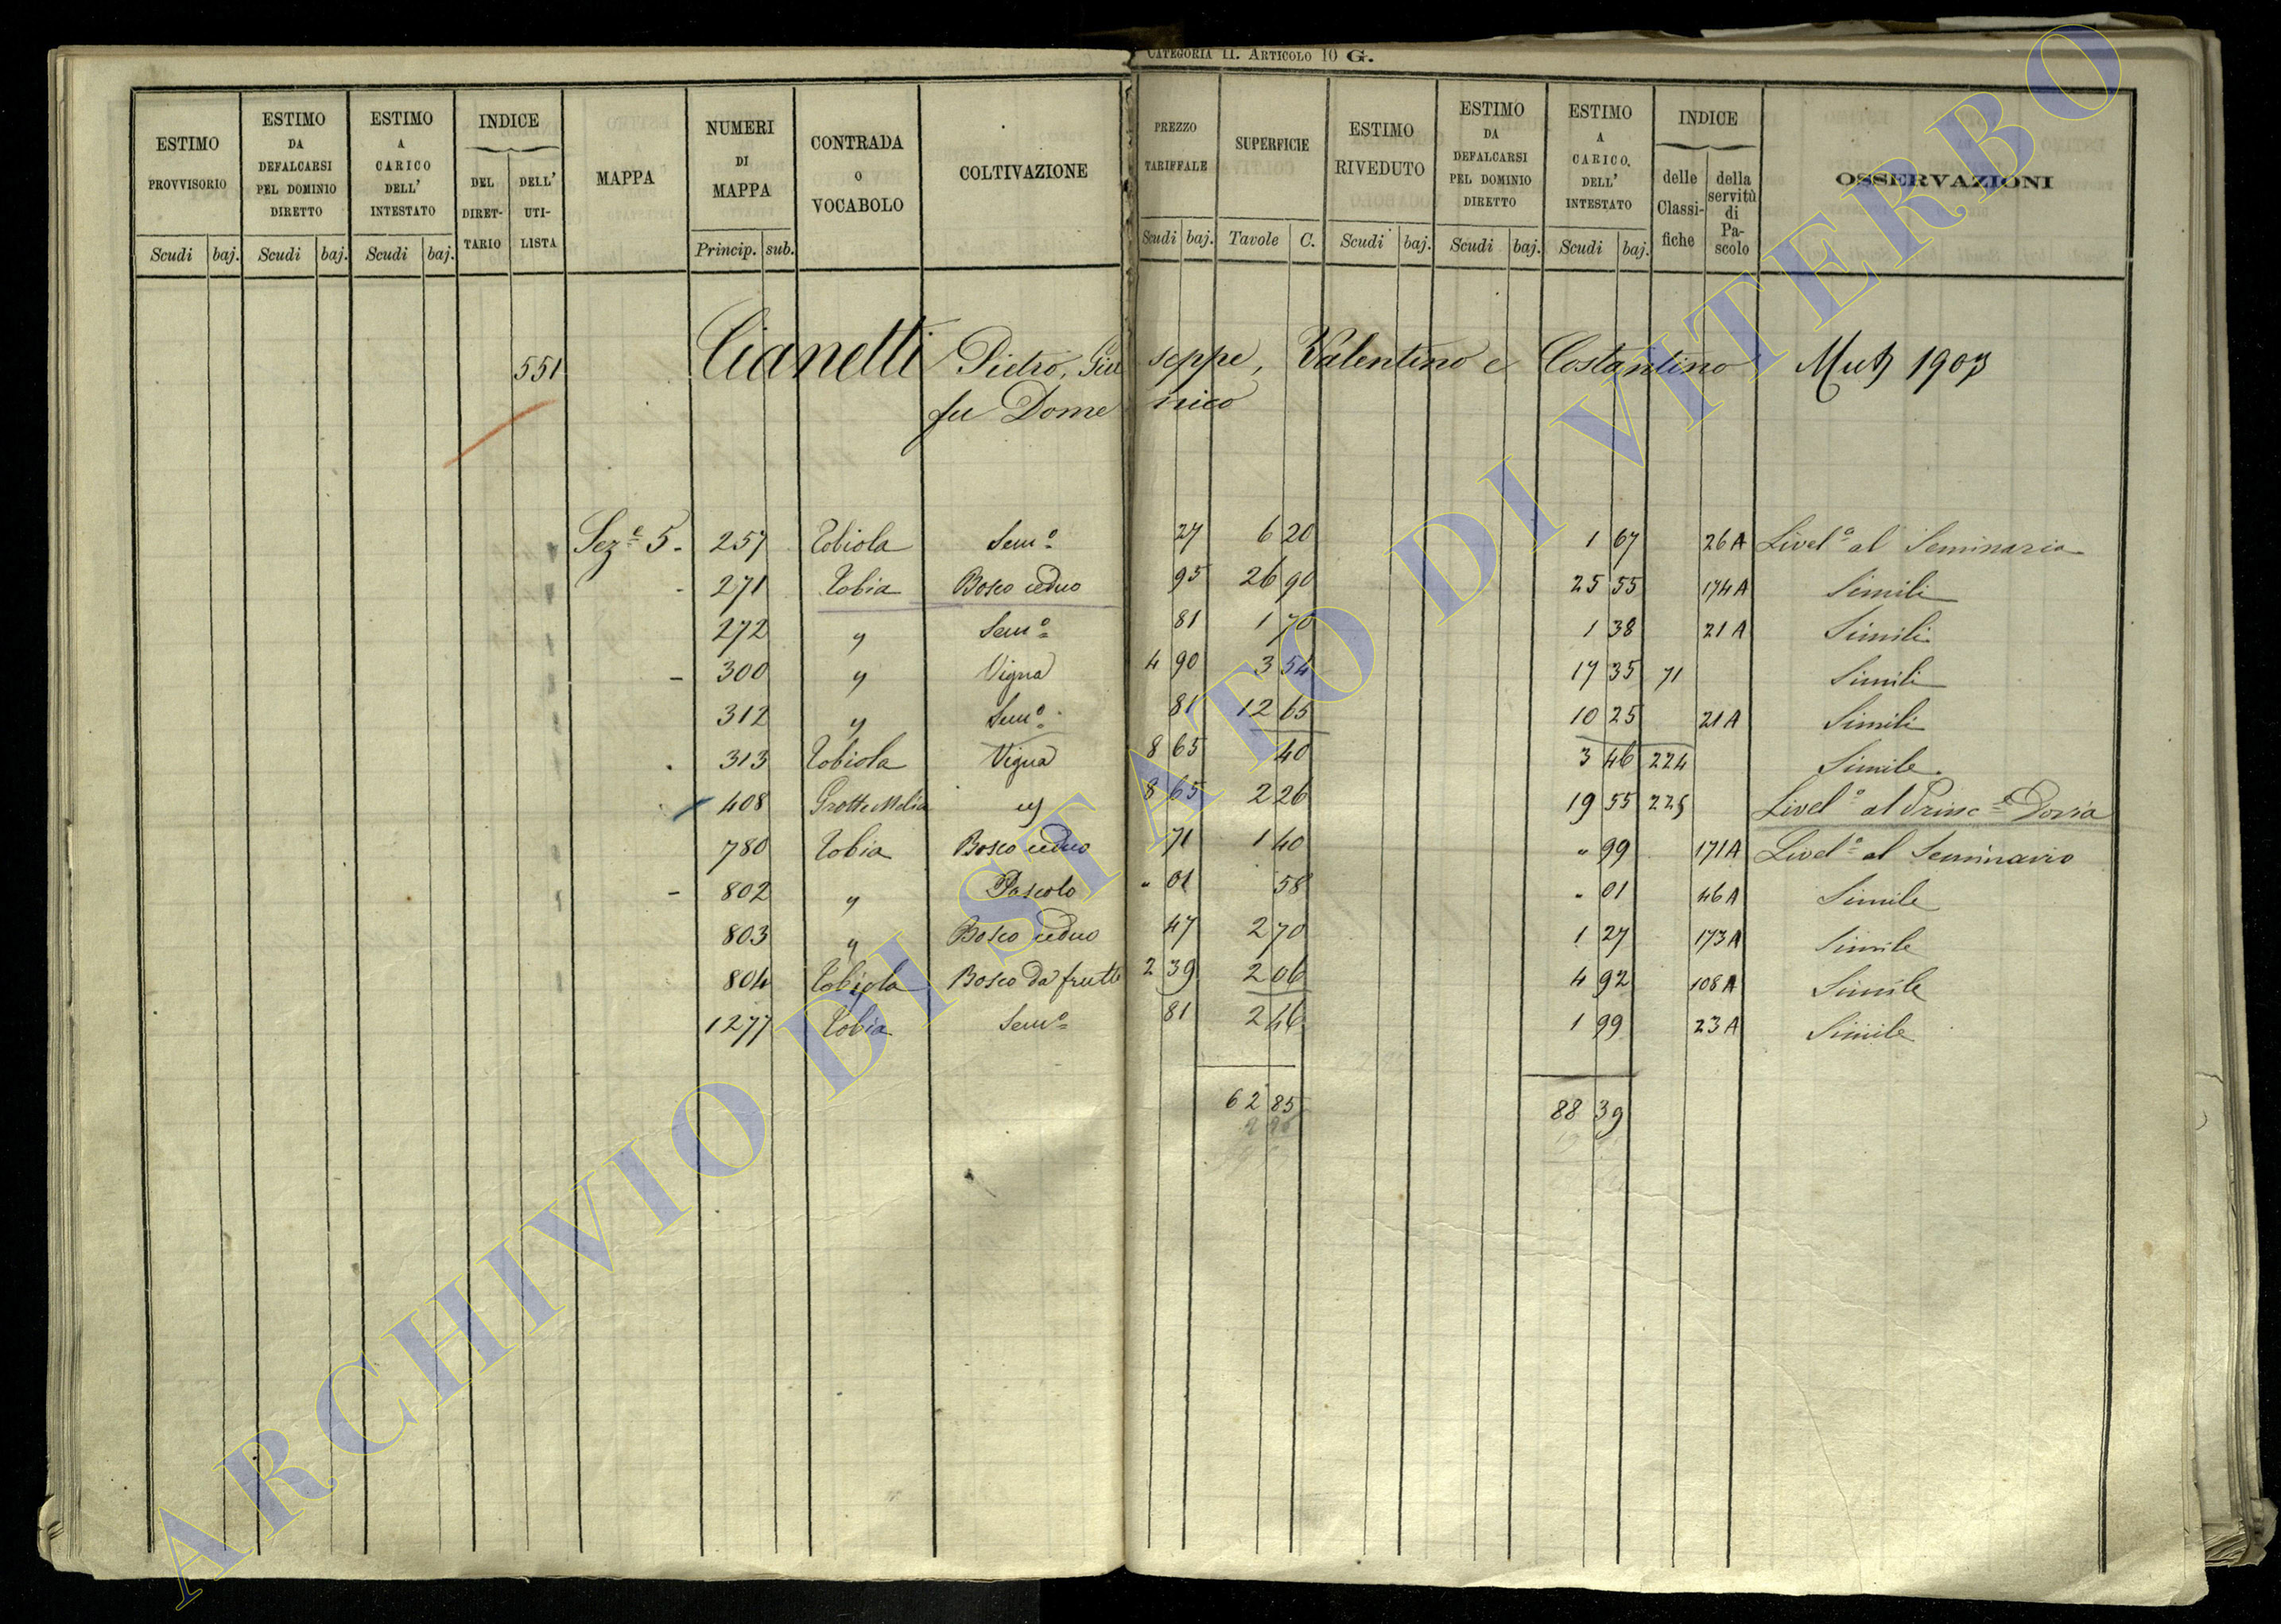 CATEGORIA II. ARTICOLO 10 G.
ESTIMO PROVVISORIO Scudi baj.
ESTIMO DA DEFALCARSI PEL DOMINIO DIRETTO Scudi baj.
ESTIMO A CARICO DELL' INTESTATO Scudi baj.
INDICE DEL DIRET-TARIO DELL' UTI-LISTA
MAPPA
NUMERI DI MAPPA Princip. sub.
CONTRADA O VOCABOLO
COLTIVAZIONE
PREZZO TARIFFALE Scudi baj.
SUPERFICIE Tavole C.
ESTIMO RIVEDUTO Scudi baj.
ESTIMO DA DEFALCARSI PEL DOMINIO DIRETTO Scudi baj.
ESTIMO A CARICO. DELL' INTESTATO Scudi baj.
INDICE delle Classi-fiche della servitù di Pa-scolo
OSSERVAZIONI
551 Cianetti Pietro, Giu seppe, Valentino e Costantino 1903
fu Dome nico
Sez.e 5 - 257 Tobiola Sem.o 27 6 20 1 67 26 A Livel.o al Seminario
- 271 Tobia Bosco ceduo 95 26 90 25 55 174 A Simili
272 " Sem.o 81 1 70 1 38 21 A Simili
- 300 " Vigna 4 90 3 54 17 35 71 Simili
312 " Sem.o 81 12 65 10 25 21 A Simili
313 Tobiola Vigna 8 65 40 3 46 224 Simile
408 Grotte Melia " 8 65 2 26 19 55 225 Livel.o al Princ.e Doria
780 Tobia Bosco ceduo 71 1 40 " 99 171 A Livel.o al Seminario
- 802 " Pascolo " 01 58 " 01 46 A Simile
803 " Bosco ceduo 47 2 70 1 27 173 A Simile
804 Tobiola Bosco da frutto 2 39 2 06 4 92 108 A Simile
1277 Tobia Sem.o 81 2 46 1 99 23 A Simile
62 85 88 39
ARCHIVIO DI STATO DI VITERBO